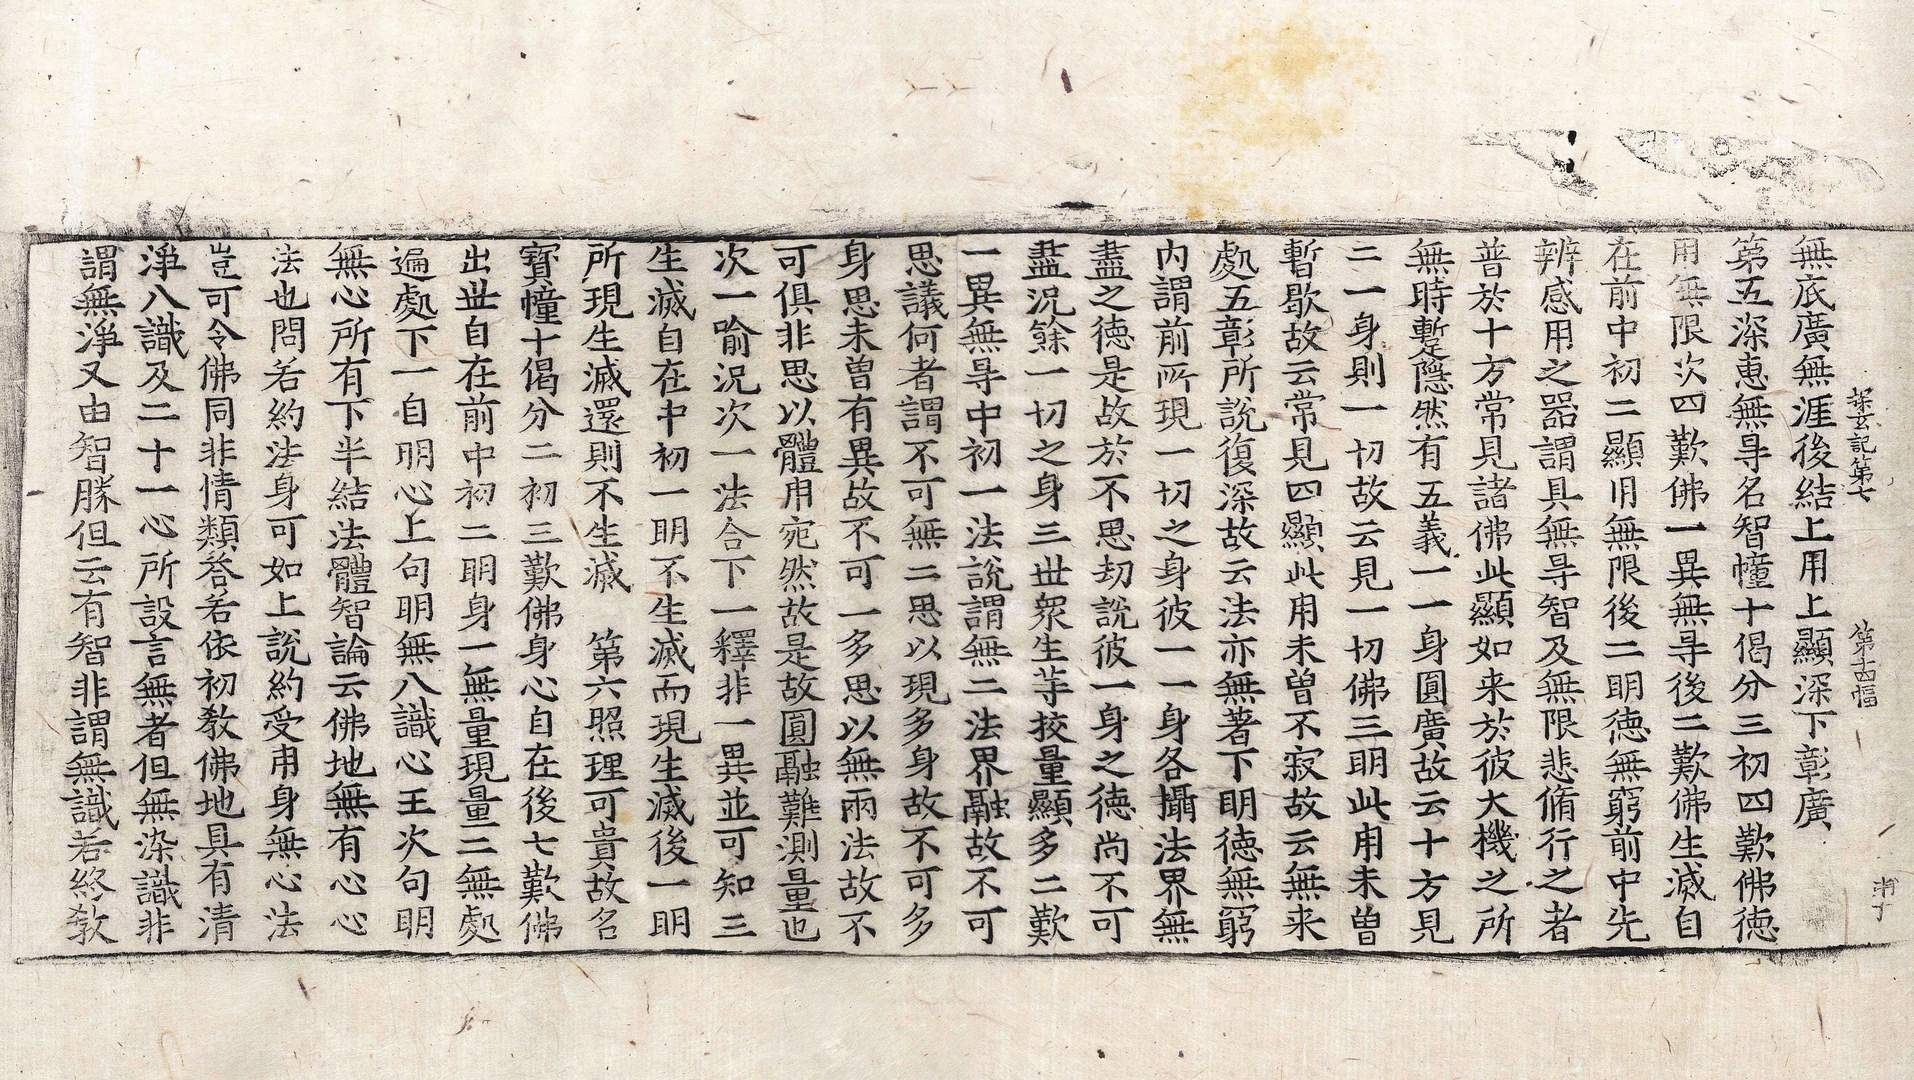 探玄記第七　第十四幅
無底廣無涯後結上用上顯深下彰廣
第五深惠無㝵名智幢十偈分三初四歎佛德
用無限次四歎佛一異無㝵後二歎佛生滅自
在前中初二顯用無限後二明德無窮前中先
辨感用之器謂具無㝵智及無限悲脩行之者
普於十方常見諸佛此顯如来於彼大機之所
無時蹔隱然有五義一一身圓廣故云十方見
二一身則一切故云見一切佛三明此用未曽
暫歇故云常見四顯此用未曽不寂故云無来
處五彰所說復深故云法亦無著下明德無窮
内謂前所現一切之身彼一一身各攝法界無
盡之德是故於不思劫說彼一身之德尚不可
盡況餘一切之身三世衆生䓁挍量顯多二歎
一異無㝵中初一法說謂無二法界融故不可
思議何者謂不可無二思以現多身故不可多
身思未曽有異故不可一多思以無兩法故不
可俱非思以體用宛然故是故圓融難測量也
次一喻況次一法合下一釋非一異並可知三
生滅自在中初一明不生滅而現生滅後一明
所現生滅還則不生滅　第六照理可貴故名
寳幢十偈分二初三歎佛身心自在後七歎佛
出世自在前中初二明身一無量現量二無處
遍處下一自明心上句明無八識心王次句明
無心所有下半結法體智論云佛地無有心心
法也問若約法身可如上說約受用身無心法
豈可令佛同非情類荅若依初教佛地具有清
淨八識及二十一心所設言無者但無染識非
謂無淨又由智勝但云有智非謂無識若終教